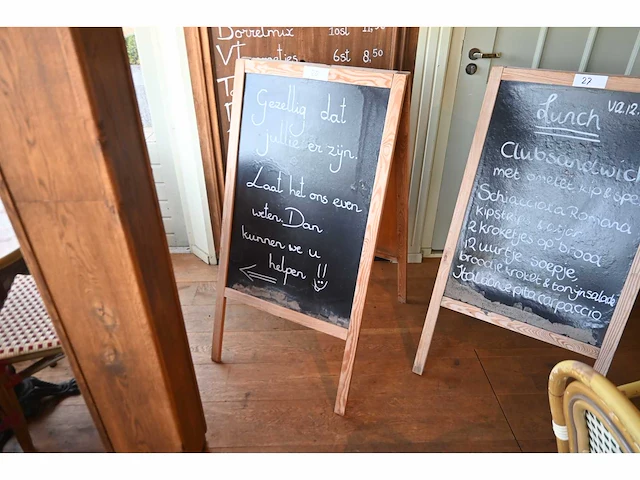 Borrelmix 10st
V 6st 8,50
Gezellig dat
jullie er zijn.
Laat het ons even
weten. Dan
kunnen we u
helpen !!
27
Lunch
Clubsandwich
met omelet kip & spe
Schiacciata Romana
kipster
2 kroketjes op brood
12 uurtje soepje
broodje kroket & tonijnsalade
carpaccio